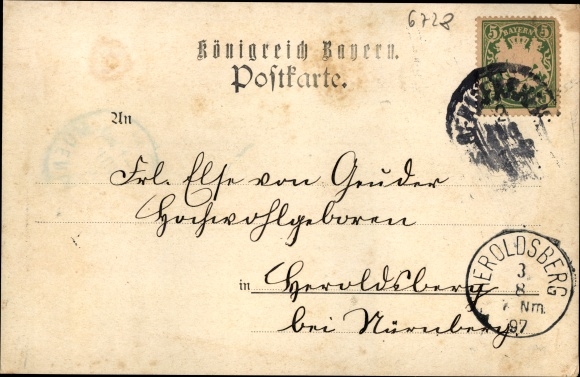 6728
Königreich Bayern.
Postkarte.
5 BAYERN 5
An
Frl. Else von Geuder
Hochwohlgeboren
in Heroldsberg
bei Nürnberg.
HEROLDSBERG
3
8
7 Nm.
97